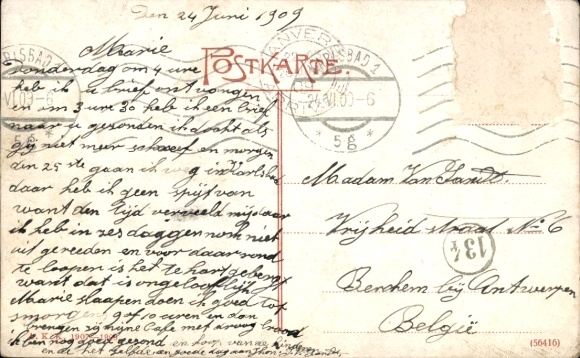 Den 24 Juni 1909
Marie
POSTKARTE.
donderdag om 4 ure
heb ik u brief ontvangen
om 3 ure 30 heb ik een brief
naar u gesonden ik docht als
gij niet meer schreef en morgen
den 25ste gaan ik weg in Karlsbad
daar heb ik geen spijt van
want den tijd verveeld mij daar
ik heb in zes daggen nom niet
uit gereeden en voor daar rond
te loopen is het te hart gebergt
want dat is ongelooflijk
Marie slaapen doen ik goed tot
smorgens 9 of 10 uren en dan
brengen zij mijne Cafe met droog brood
ik ben nog goed gesond en hoop van de kinderen
en de het zelfde en goede dag aan
Madam Van Landt.
Vrijheid straat No 6
Berchem bij Antwerpen
België
ANVERS
KARLSBAD 1
24.VI.09-6
* 5g *
RLSBAD 1
VI.09-6
134
(56416)